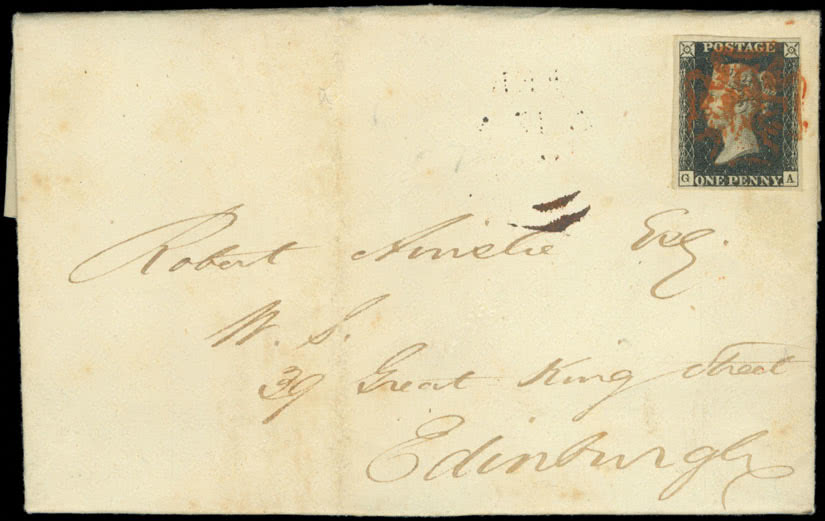 POSTAGE
G A
ONE PENNY.
Robert Ainslie Esq.
W. S.
39 Great King Street
Edinburgh